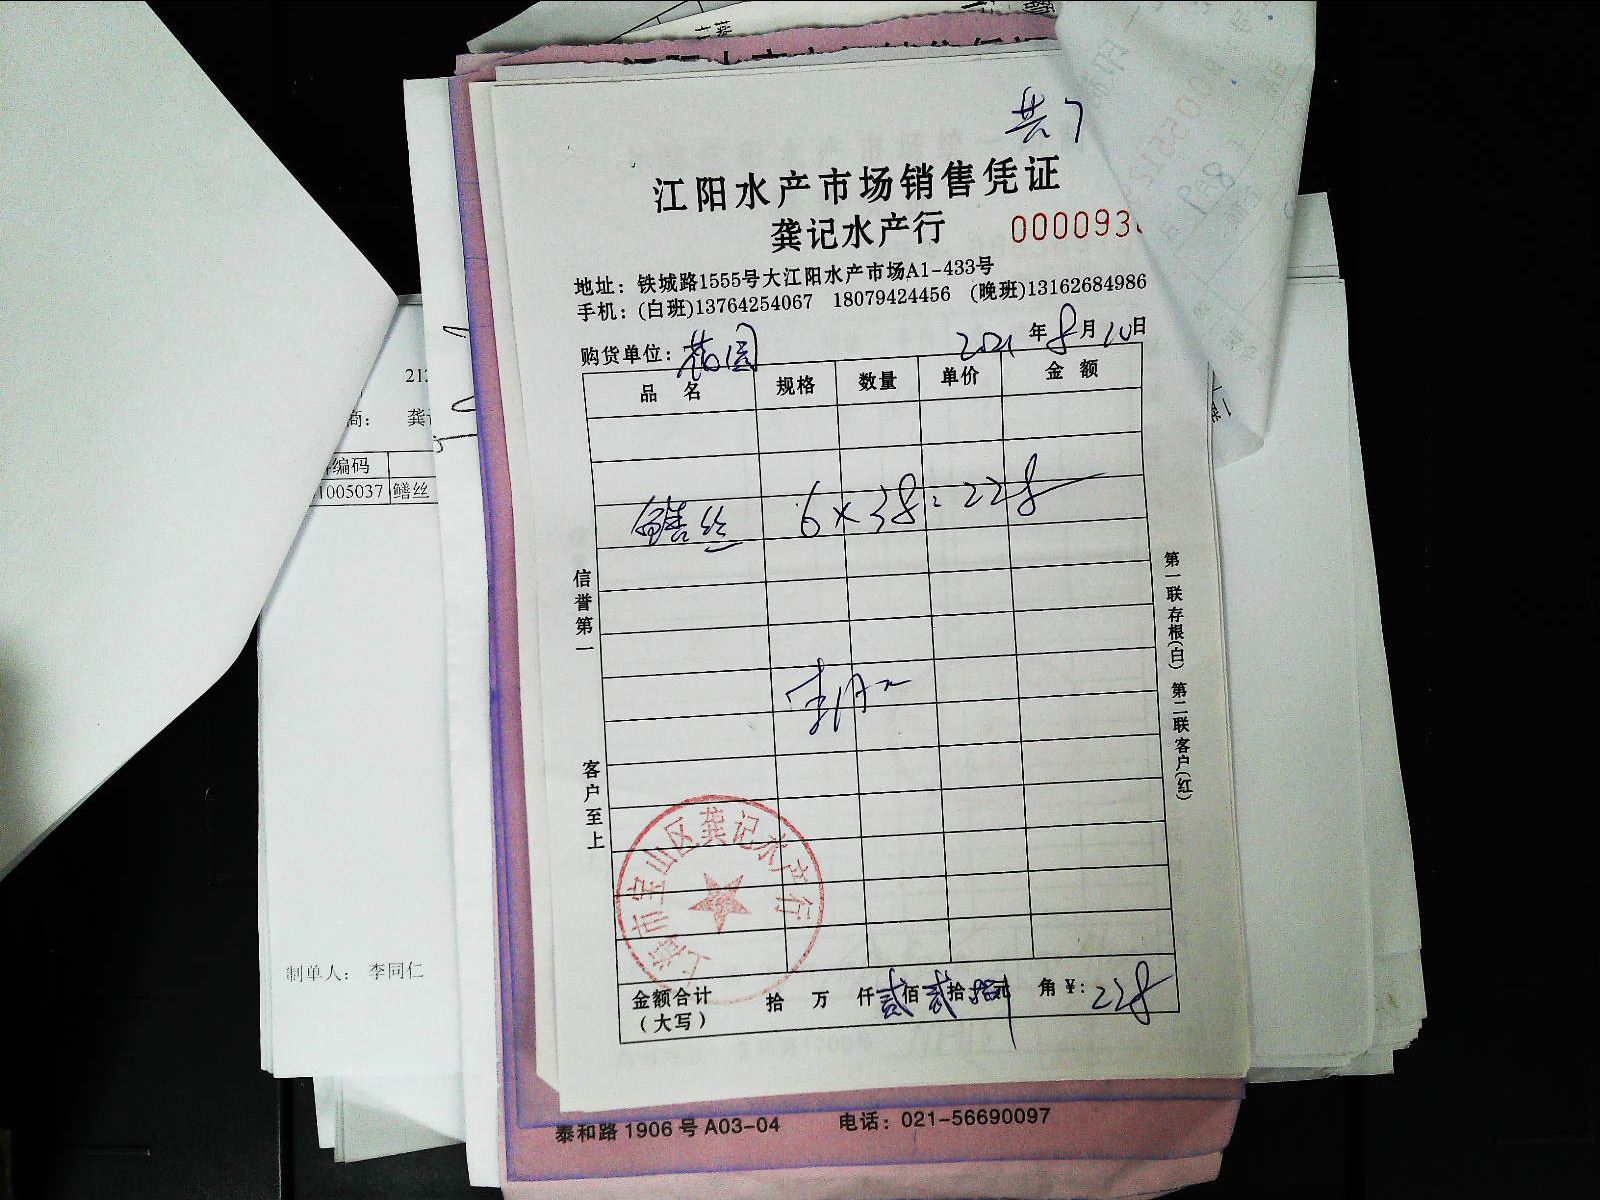 共7
江阳水产市场销售凭证
龚记水产行
000093
地址：铁城路1555号大江阳水产市场A1-433号
手机：(白班)13764254067 18079424456 (晚班)13162684986
购货单位：花园 2021年8月10日
品名 规格 数量 单价 金额
鳝丝 6×38=228
信誉第一
客户至上
第一联存根(白) 第二联客户(红)
上海市宝山区龚记水产行
金额合计（大写） 拾 万 仟贰佰贰拾捌元 角 ¥：228
泰和路1906号A03-04 电话：021-56690097
212
商： 龚
编码
1005037 鳝丝
制单人： 李同仁